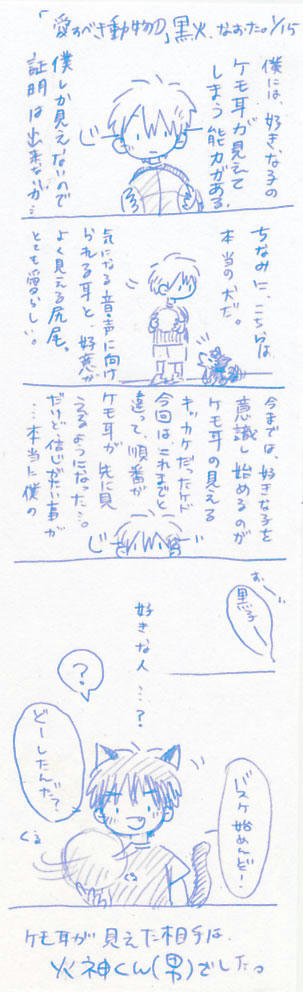 「愛すべき動物の」黒火、なおた。1/15
僕には、好きな子の
ケモ耳が見えて
しまう能力がある。
じ
僕しか見えないので
証明は出来ないが…
ちなみに、こちらは
本当の犬だ。
気になる音・声に向け
られる耳と、好意が
よく見える尻尾。
とても愛らしい。
今までは、好きな子を
意識し始めるのが
ケモ耳の見える
キッカケだったケド
今回は、これまでと
違って、順番が
ケモ耳が先に見
えるようになった…。
だけど信じがたい事が
…本当に僕の
じ
おーい
黒子ー
好きな人…?
?
どーしたんだ?
バスケ始めんぞー!
くる
くる
ケモ耳が見えた相手は、
火神くん(男)でした。